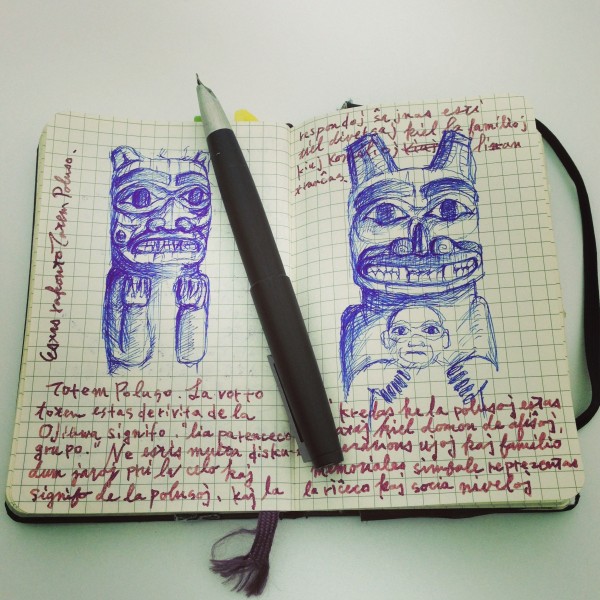 Totem Poluso.
Totem Poluso. La vorto
totem estas derivita de la
signifo. lia parenceco
grupo. Ne estis multa disku-
dum jaroj pri la celo kaj
signifo de la polusoj, kaj la
respondoj esti
kiel diversaj kiel la familioj
kiuj
kredas ke la polusoj estas
kiel domon de afiŝoj,
kaj familio
memorialas simbole reprezentas
la riĉeco kaj socia niveloj